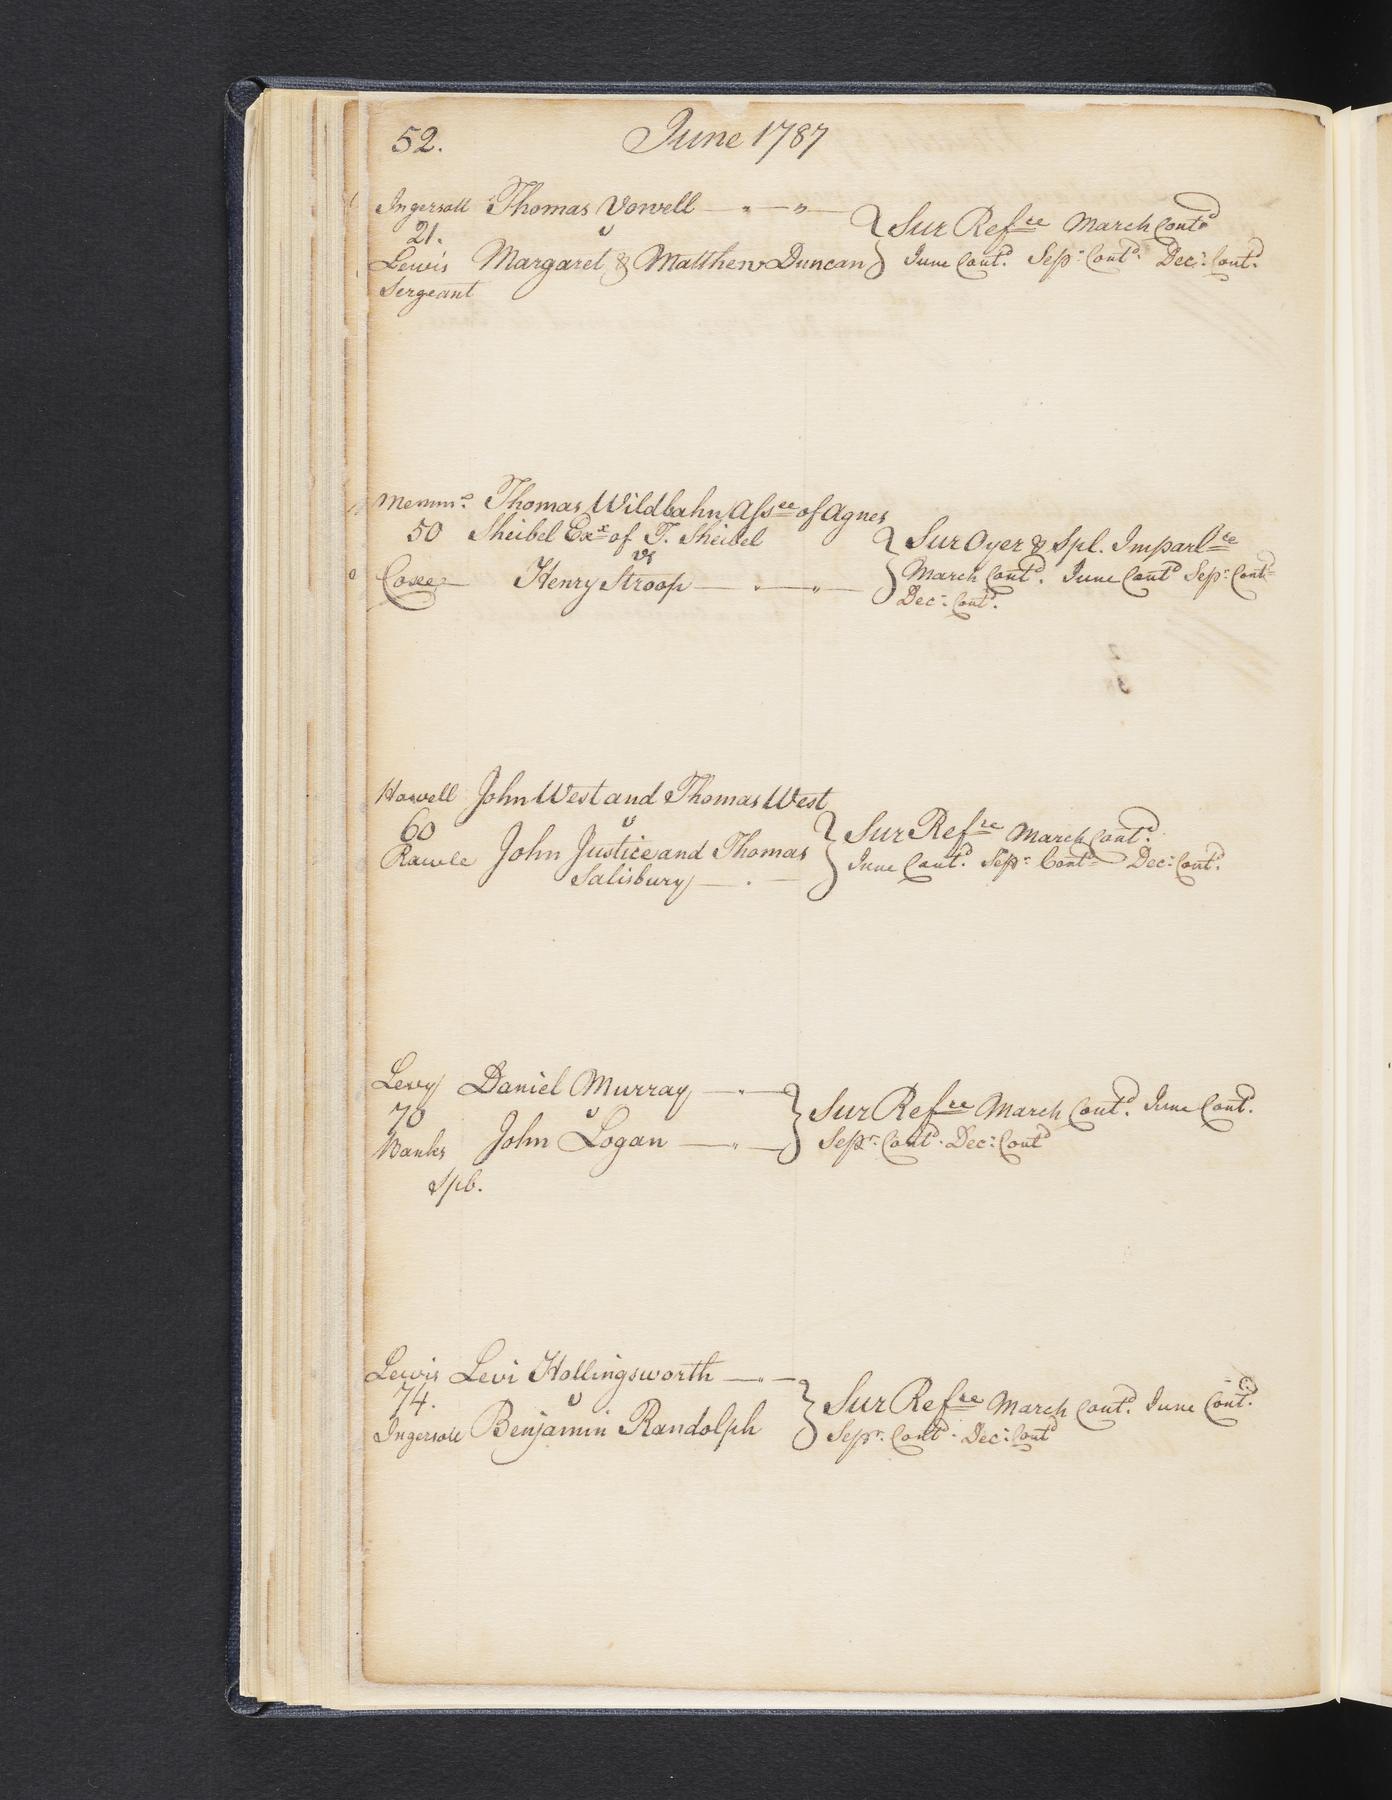 52. June 1787
Ingersoll Thomas Vowell
21. v
Lewis Margaret & Matthew Duncan
Sergeant
Sur Refce March Contd
June Contd. Sepr Contd. Decr Contd.
Thomas Wildbahn Assee of Agnes
50 Sheibel Exx of T. Sheibel
vs
Henry Stroop
Sur Oyer & Spl. Imparlce
March Contd. June Contd Sepr Contd
Decr Contd.
Howell John West and Thomas West
60 v
Rawle John Justice and Thomas
Salisbury
Sur Refce March Contd.
June Contd. Sepr Contd Decr Contd.
Levy Daniel Murray
70 v
Banks John Logan
Spb.
Sur Refce March Contd. June Contd.
Sepr Contd. Decr Contd
Lewis Levi Hollingsworth
74. v
Ingersoll Benjamin Randolph
Sur Refce March Contd. June Contd.
Sepr Contd. Decr Contd